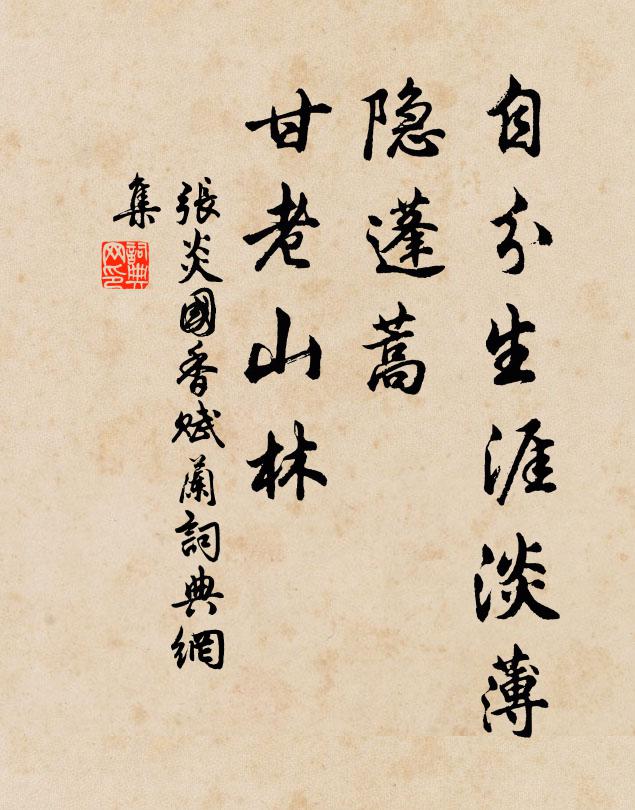 自分生涯淡薄
隐蓬蒿
甘老山林
張炎國香賦蘭詞典網
集
詞典
网印